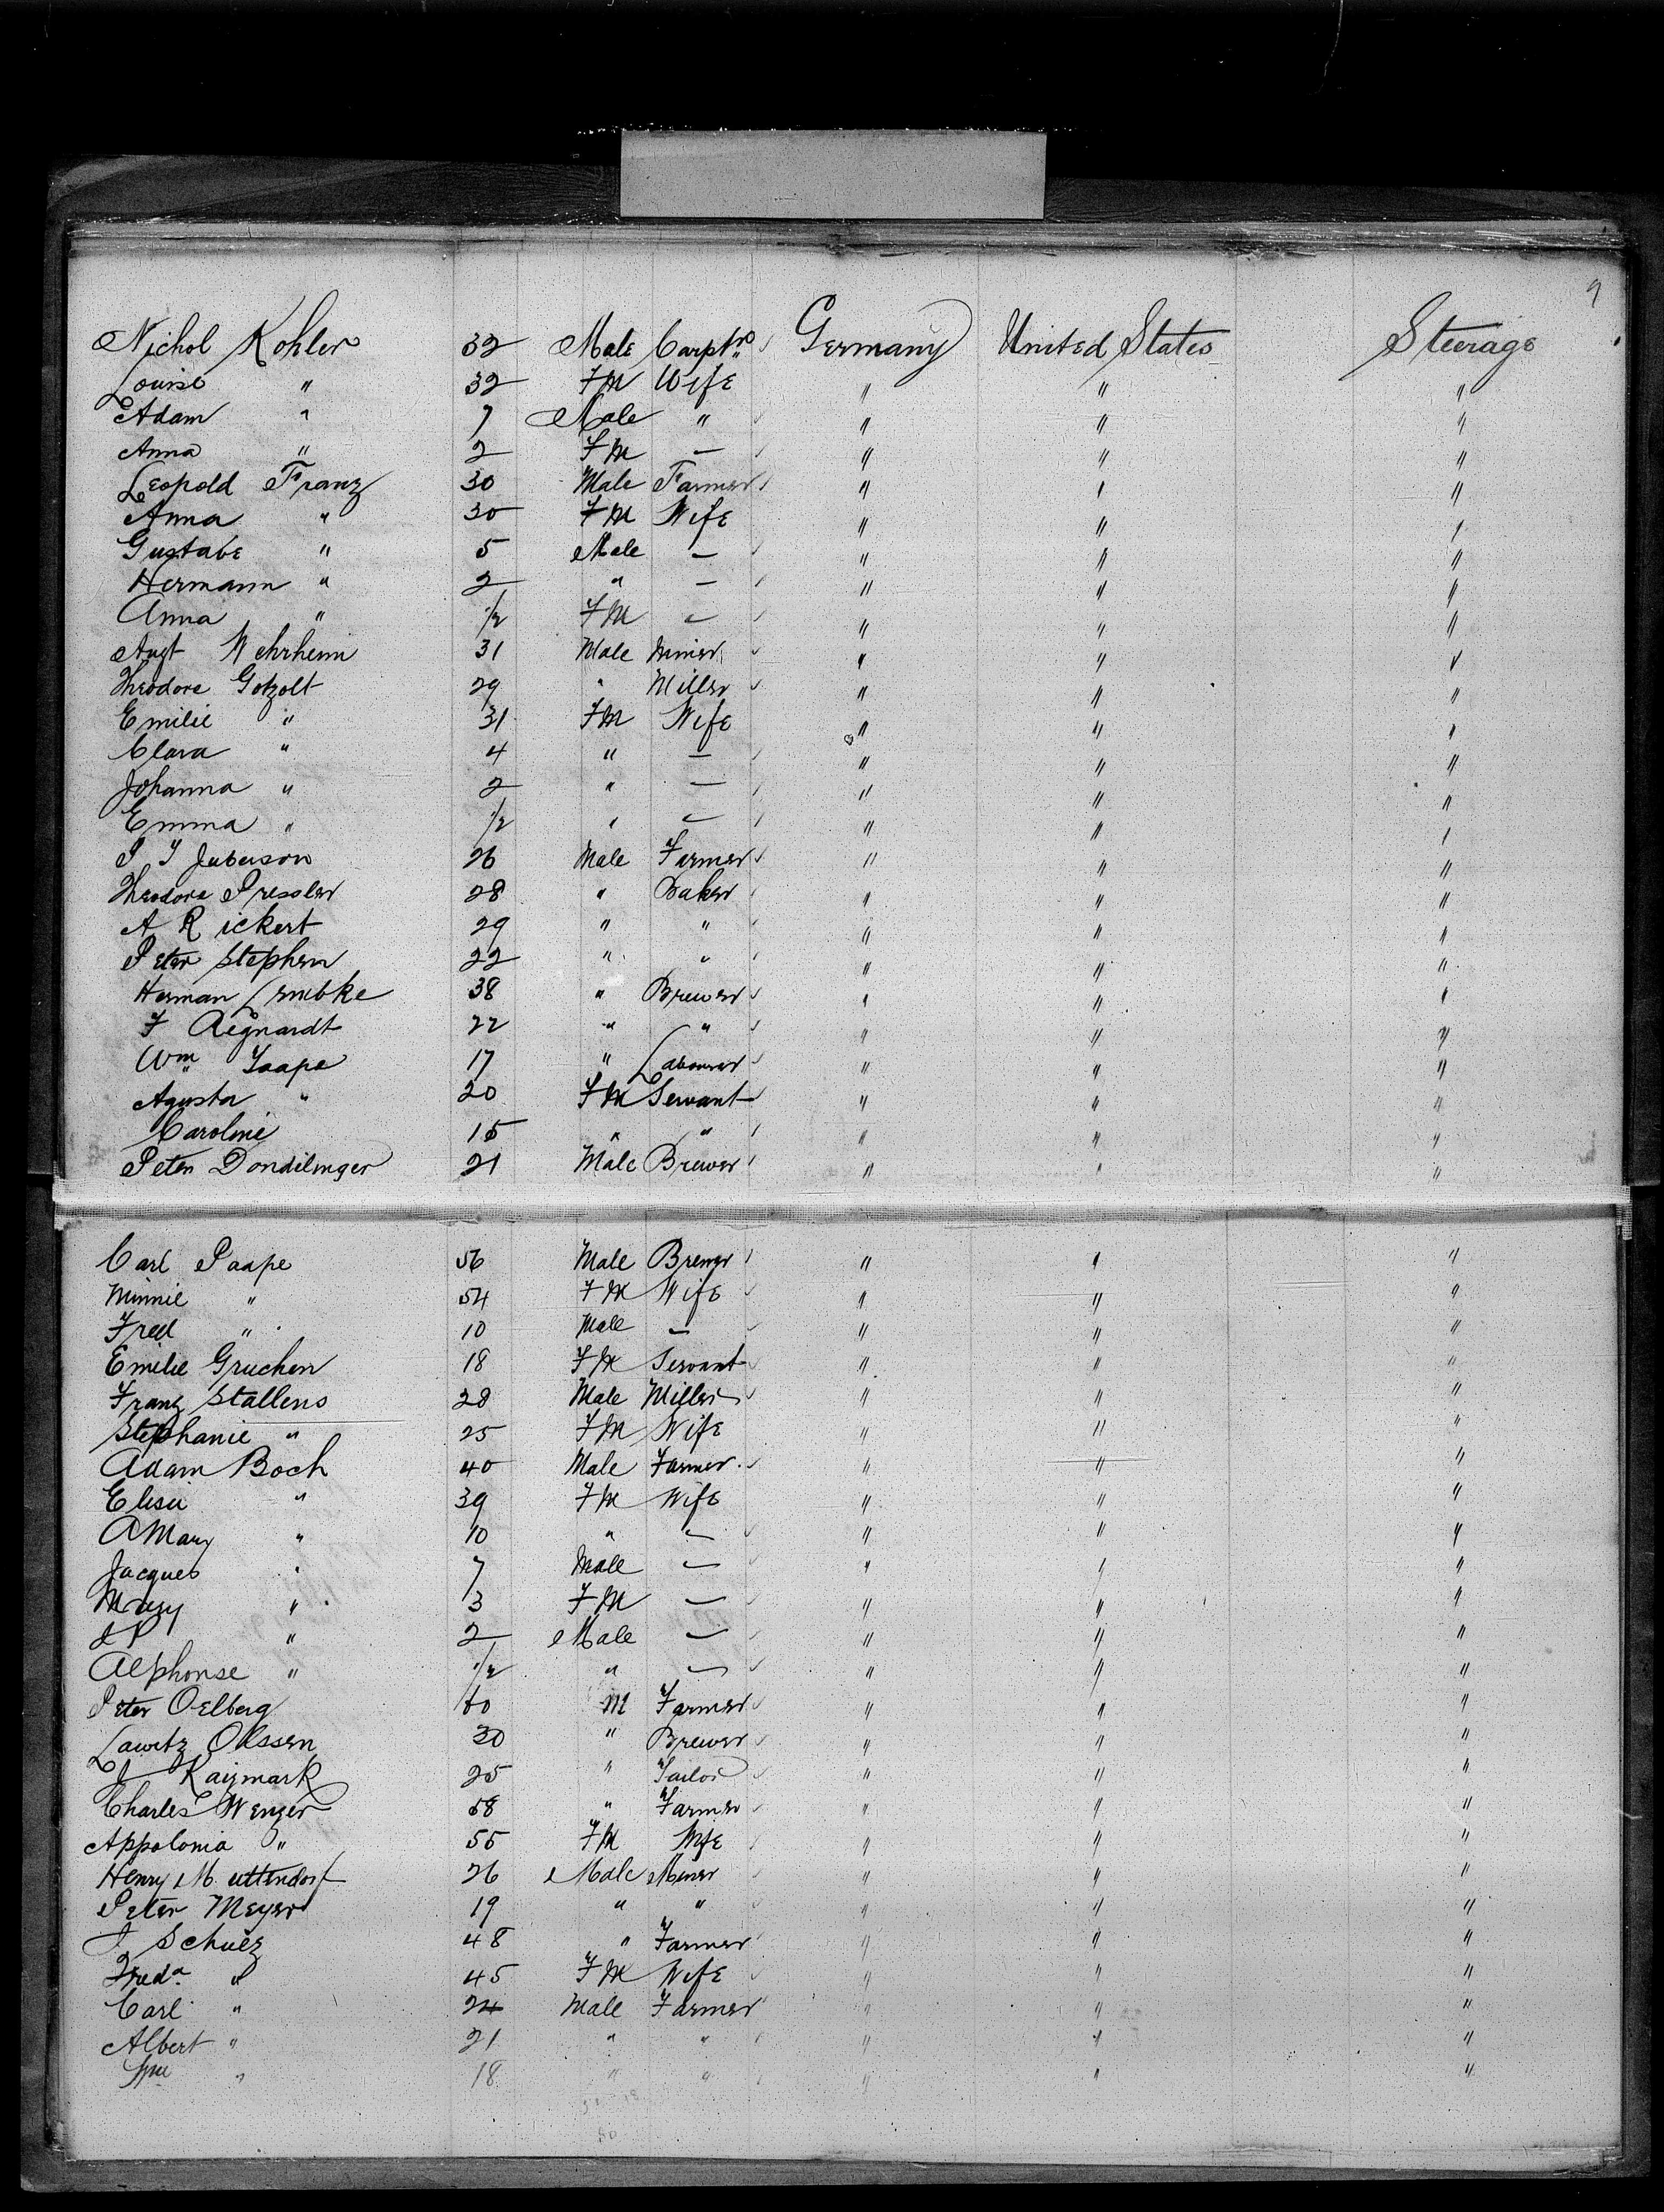 9
Nichol Kohler 32 Male Carptr Germany United States Steerage
Louise " 32 FM Wife " " "
Adam " 7 Male " " " "
Anna " 2 FM — " " "
Leopold Franz 30 Male Farmer " " "
Anna " 30 FM Wife " " "
Gustave " 5 Male — " " "
Hermann " 2 " — " " "
Anna " 1/2 FM — " " "
Augt Wehrheim 31 Male Miner " " "
Theodore Gotzolt 29 " Miller " " "
Emilie " 31 FM Wife " " "
Clara " 4 " — " " "
Johanna " 2 " — " " "
Emma " 1/2 " — " " "
P I 26 Male Farmer " " "
Theodore Pressler 28 " Baker " " "
A Rickert 29 " " " " "
Peter Stephen 22 " " " " "
Herman Lembke 38 " Brewer " " "
F Regnardt 22 " " " " "
Wm Paape 17 " Labourer " " "
Agusta " 20 FM Servant " " "
Caroline 15 " " " " "
Peter Dondelinger 21 Male Brewer " " "
Carl Paape 56 Male Brewer " " "
Minnie " 54 FM Wife " " "
Fred " 10 Male — " " "
Emilie Gruchen 18 FM Servant " " "
Franz Stallens 28 Male Miller " " "
Stephanie " 25 FM Wife " " "
Adam Boch 40 Male Farmer " " "
Elisii " 39 FM Wife " " "
A Mary " 10 " — " " "
Jacques " 7 Male — " " "
Mary " 3 FM — " " "
J P " 2 Male — " " "
Alphonse " 1/2 " — " " "
Peter Oelberg 60 M Farmer " " "
Lawitz Olssen 30 " Brewer " " "
J Kaymark 25 " Tailor " " "
Charles Wenger 58 " Farmer " " "
Appolonia " 55 FM Wife " " "
Henry Muttendorf 26 Male Miner " " "
Peter Meyer 19 " " " " "
J Schulz 48 " Farmer " " "
Freda " 45 FM Wife " " "
Carl " 24 Male Farmer " " "
Albert " 21 " " " " "
" 18 " " " " "